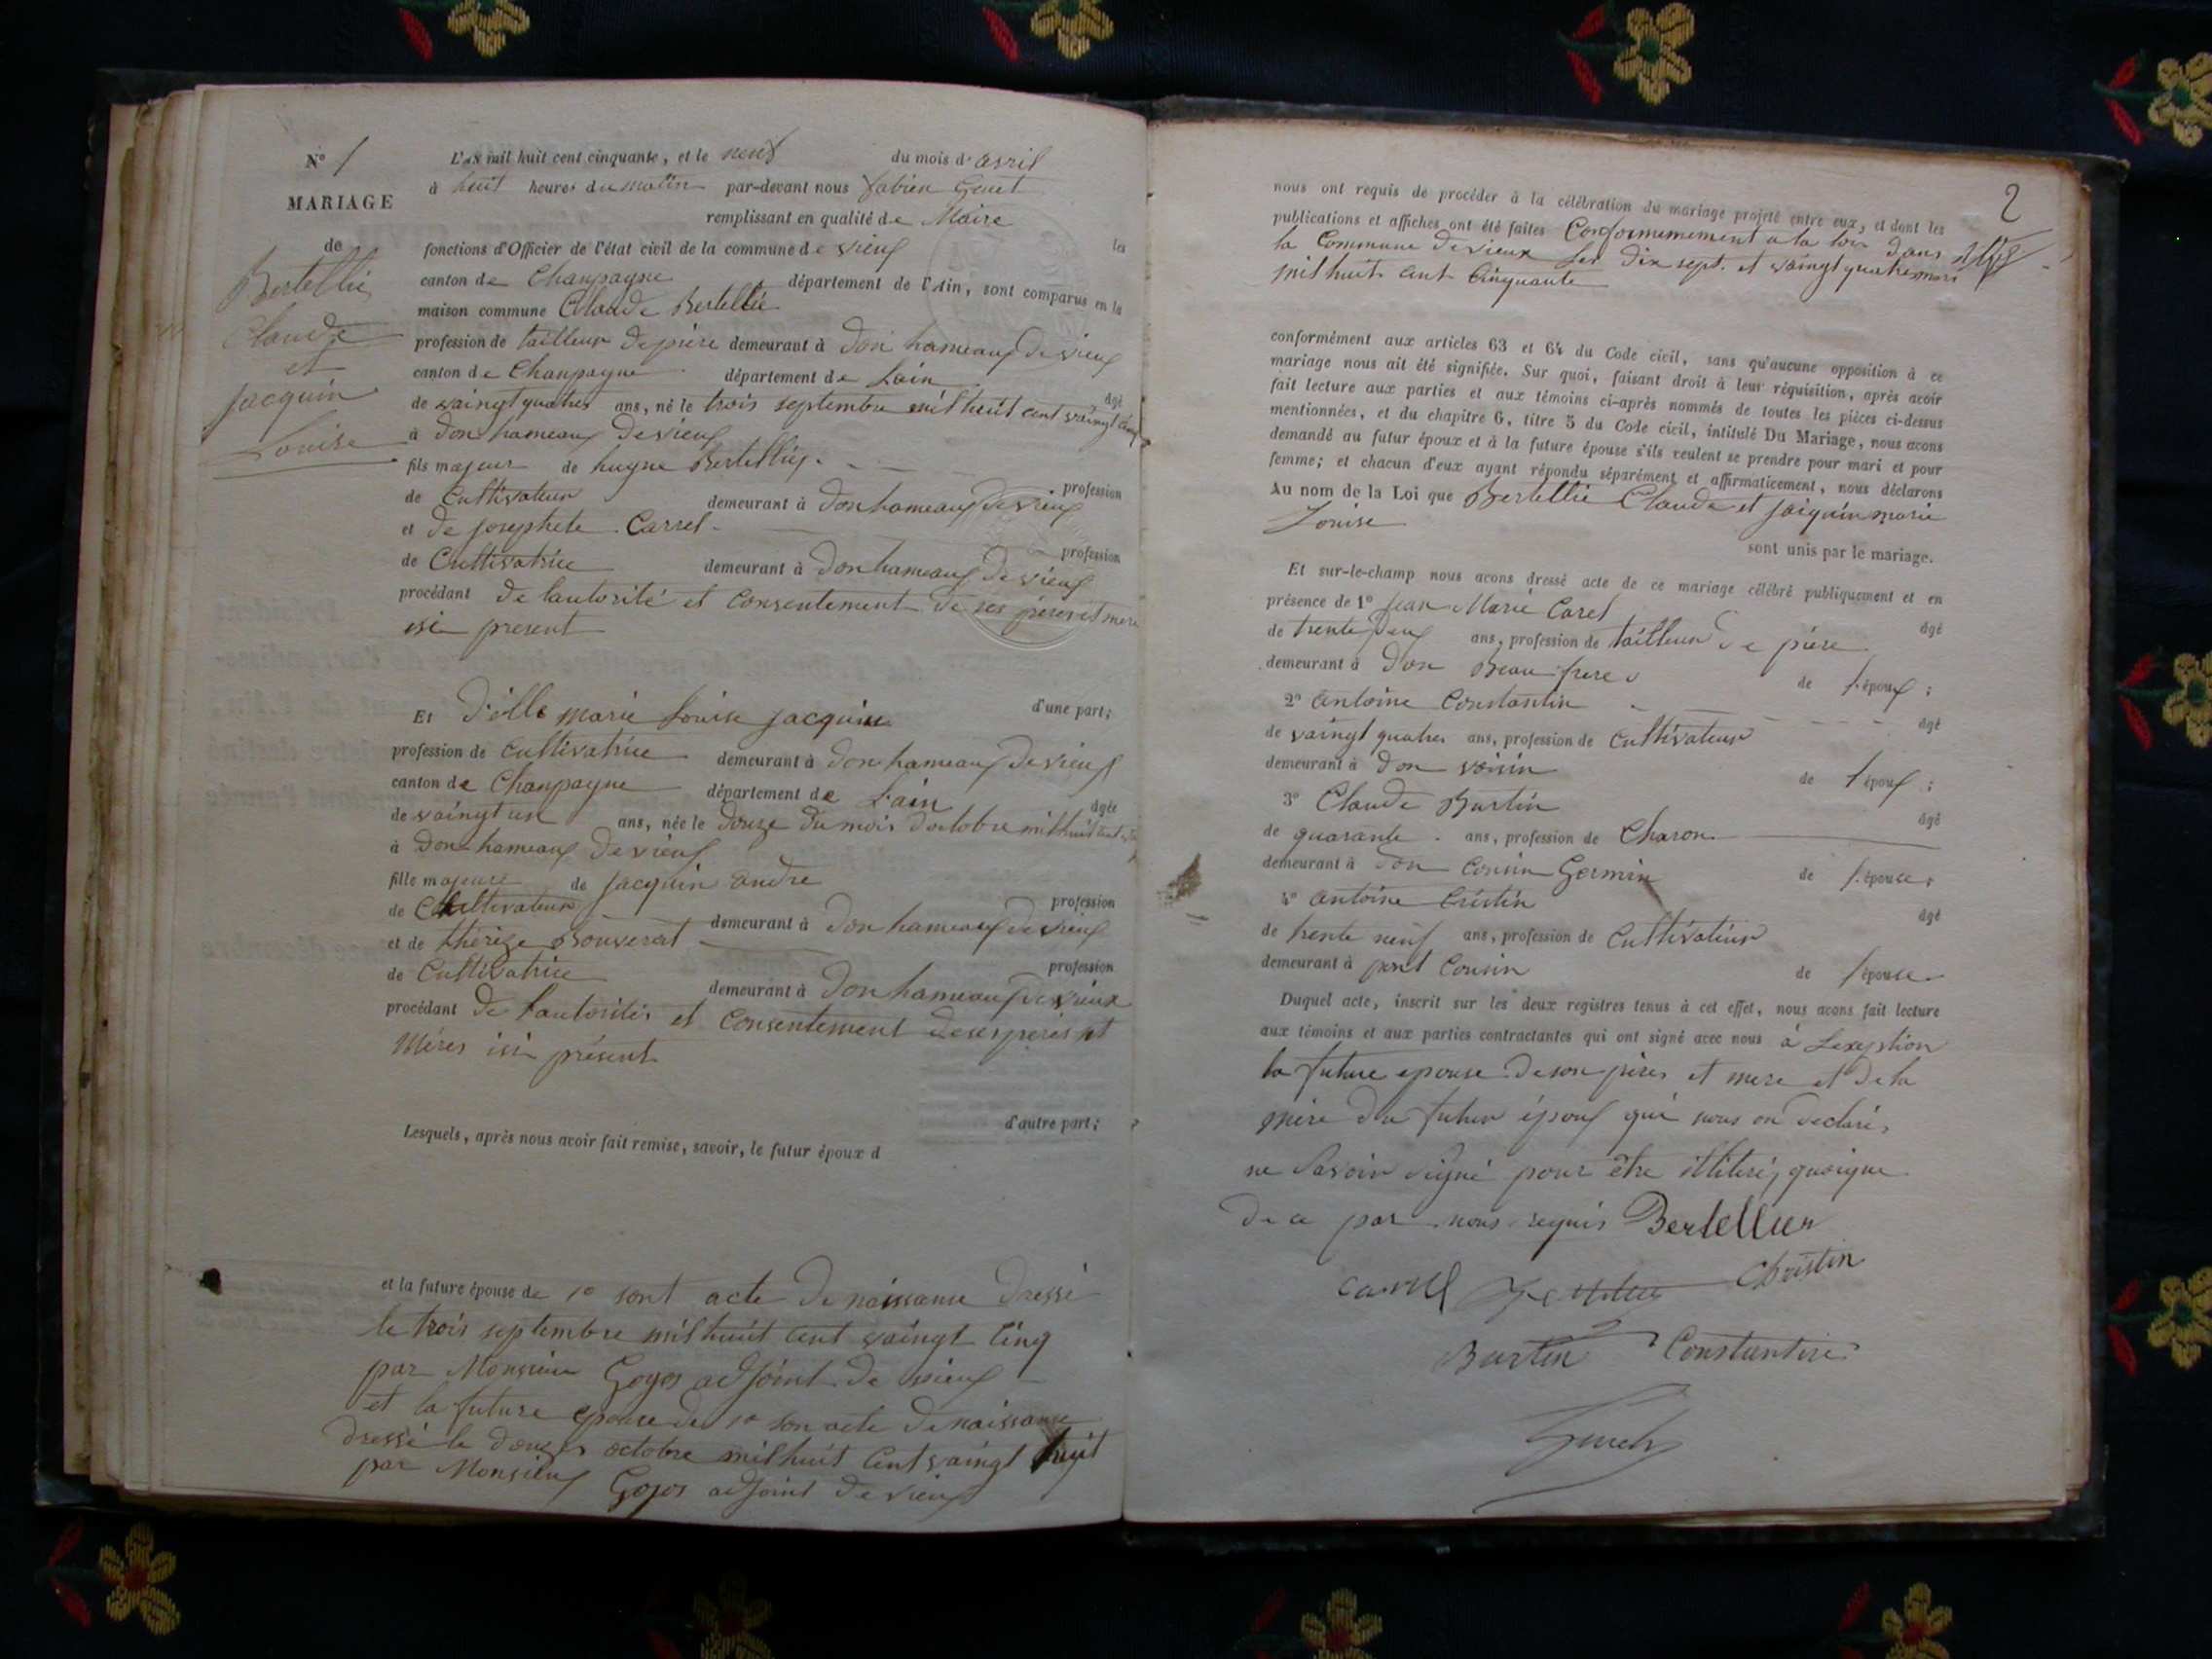 N° 1
MARIAGE
de
Bertellié
Claude
et
Jacquin
Louise
L'AN mil huit cent cinquante, et le neuf du mois d'avril
à huit heures du matin par-devant nous fabien
remplissant en qualité de Maire les
fonctions d'Officier de l'état civil de la commune de vieux
canton de Chanpagne département de l'Ain, sont comparus en la
maison commune Claude Bertellié
profession de tailleur de pière demeurant à don hameaux de vieux
canton de Chanpagne département de Lain âgé
de vaingt quatres ans, né le trois septembre mil huit cent vaingt cinq
à don hameaux de vieux
fils majeur de hugue Bertelliés profession
de Cultivateur demeurant à don hameaux de vieux
et de josephete Carrel profession
de Cultivatrice demeurant à don hameaux de vieux
procédant de lautorité et consentement de ses pères et mere
isi present
d'une part;
Et d'elle marie Louise jacquin
profession de cultivatrice demeurant à don hameaux de vieux
canton de Chanpagne département de Lain âgée
de vaingt un ans, née le douze du mois doctobre mil huit cent
à don hameaux de vieux
fille majeure de jacquin andre profession
de Cultivateur demeurant à don hameaux de vieux
et de thérèze Bouverat profession
de Cultivatrice demeurant à don hameaux de vieux
procédant de Lautorités et consentement de ses perés et
Méres isi présent
d'autre part;
Lesquels, après nous avoir fait remise, savoir, le futur époux d
et la future épouse de 1° sont acte de naissance dressé
le trois septembre mil huit cent vaingt cinq
par Monsieur Goyos adjoint de vieux
et la future epouse de 1° son acte de naissance
dressé le douzes octobre mil huit Cent vaingt huit
par Monsieux Goyos adjoint de vieux
2
nous ont requis de procéder à la célébration du mariage projeté entre eux, et dont les
publications et affiches ont été faites Conformemement a la lois dans
la Commune de vieux les dix sept et vaingt quatre mars
mil huit cent cinquante
conformément aux articles 63 et 64 du Code civil, sans qu'aucune opposition à ce
mariage nous ait été signifiée. Sur quoi, faisant droit à leur réquisition, après avoir
fait lecture aux parties et aux témoins ci-après nommés de toutes les pièces ci-dessus
mentionnées, et du chapitre 6, titre 5 du Code civil, intitulé Du Mariage, nous avons
demandé au futur époux et à la future épouse s'ils veulent se prendre pour mari et pour
femme; et chacun d'eux ayant répondu séparément et affirmativement, nous déclarons
Au nom de la Loi que Bertellié Claude et jaiquin marie
Louise
sont unis par le mariage.
Et sur-le-champ nous avons dressé acte de ce mariage célébré publiquement et en
présence de 1° Jean Marie Carel âgé
de trente deux ans, profession de tailleur de pière
demeurant à don Beau frere de l'époux;
2° antoine Constantin âgé
de vaingt quatres ans, profession de cultivateur
demeurant à don voisin de l'époux;
3° Claude Burtin âgé
de quarante ans, profession de Charon
demeurant à don Cousin Germin de l'épouse;
4° antoine Cristin âgé
de trente neuf ans, profession de Cultivateur
demeurant à pont Cousin de l'épouse
Duquel acte, inscrit sur les deux registres tenus à cet effet, nous avons fait lecture
aux témoins et aux parties contractantes qui ont signé avec nous à Lexeption
la future epouse de son pères et mere et de la
mère du futur époux qui nous on declarés
ne savoir signé pour être illiteré, quoique
de ce par nous requis Bertellier
Carrel Christin
Burtin Constantin